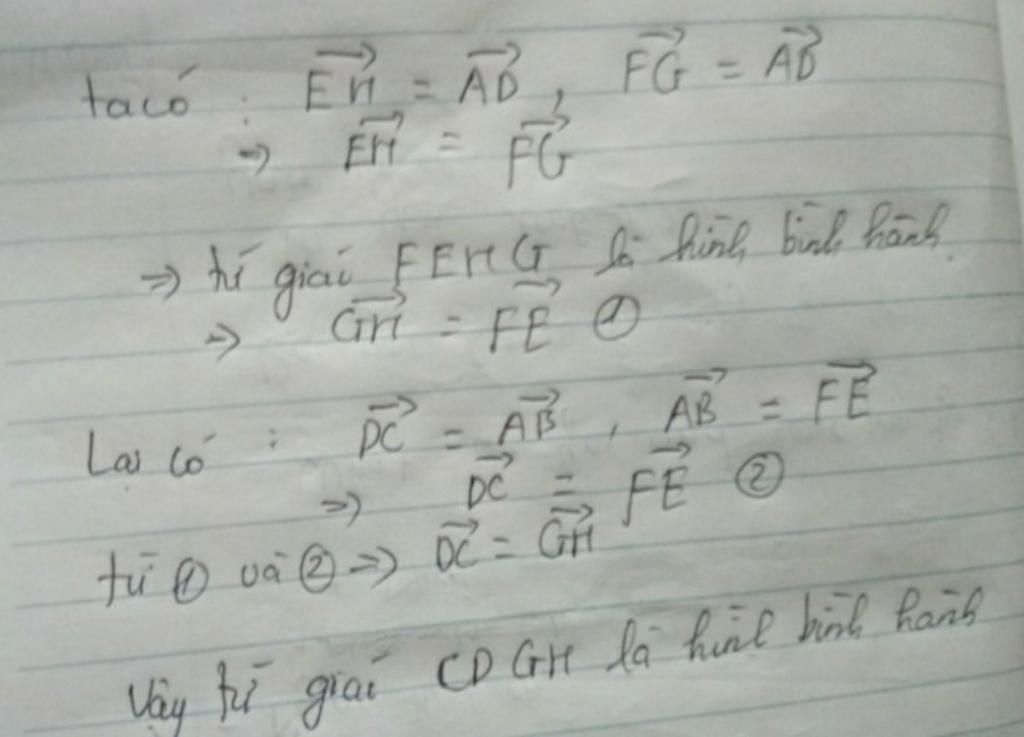 ta có : $\overrightarrow{EH} = \overrightarrow{AD}$ , $\overrightarrow{FG} = \overrightarrow{AD}$
⇒ $\overrightarrow{EH} = \overrightarrow{FG}$
⇒ tứ giác FEHG là hình bình hành
⇒ $\overrightarrow{GH} = \overrightarrow{FE}$ ①
Lại có : $\overrightarrow{DC} = \overrightarrow{AB}$ , $\overrightarrow{AB} = \overrightarrow{FE}$
⇒ $\overrightarrow{DC} = \overrightarrow{FE}$ ②
từ ① và ② ⇒ $\overrightarrow{DC} = \overrightarrow{GH}$
Vậy tứ giác CDGH là hình bình hành